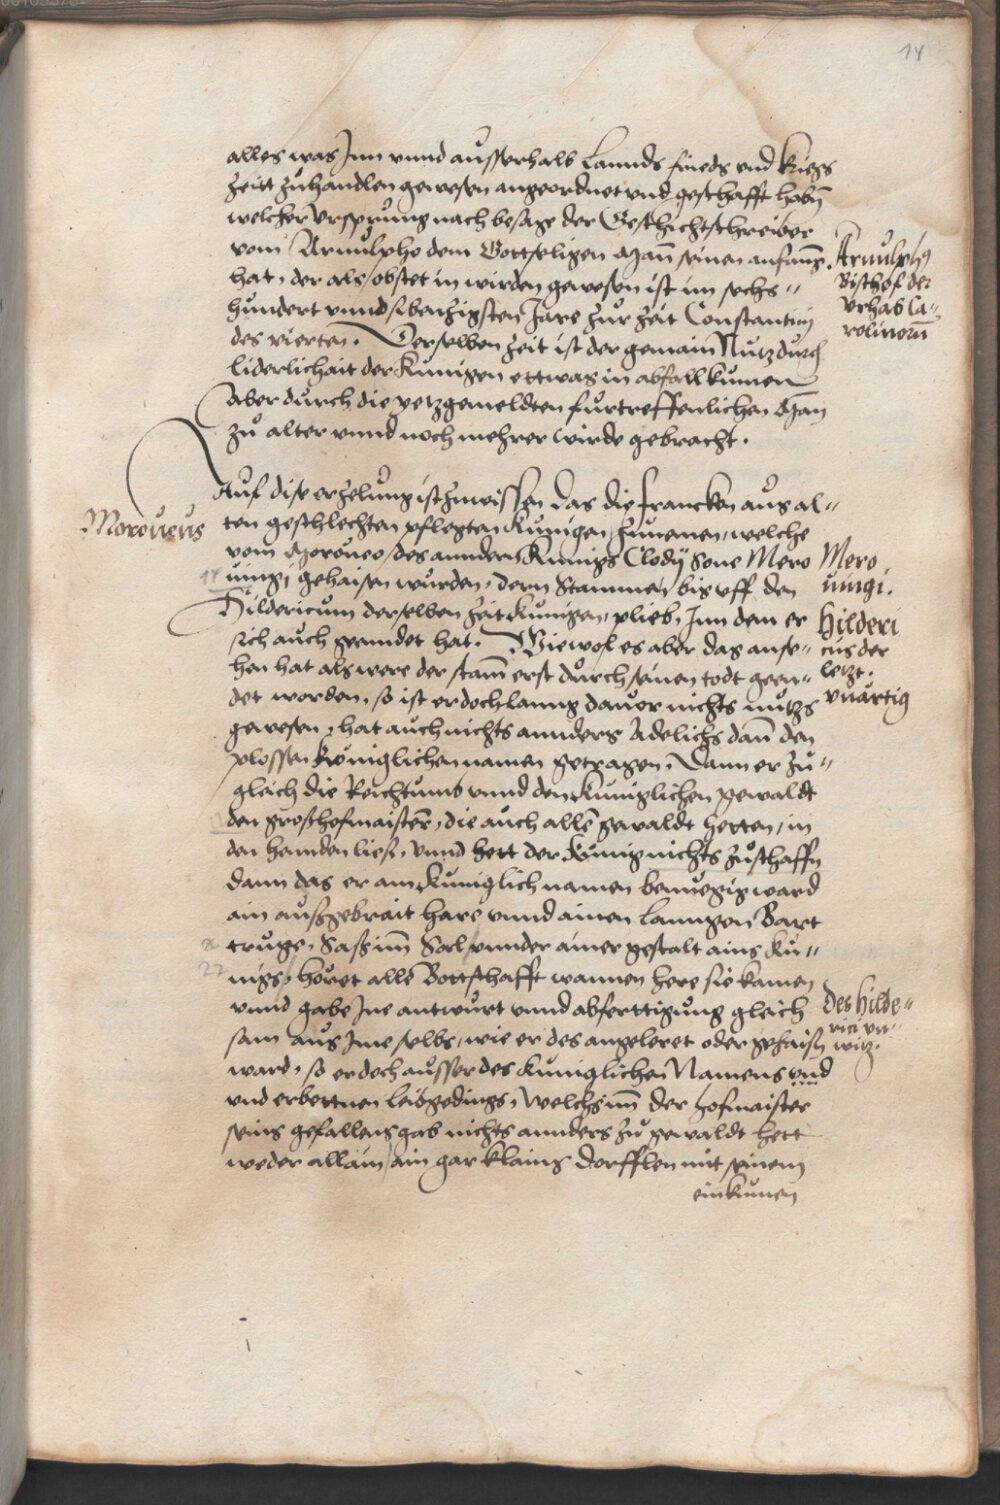 14
alles was Inn vnnd ausserhalb Lannds frieds vnd kriegs
Zeitt zuhandlen gewesen angeordnet vnd geschafft habn̄
welcher Vrsprung nach besage der Geschichtschreiber
vom Arnulpho dem Gottseligen Man̄ seinen anfanng.
hat, der als obstet in wirden gewesen ist im sechs„
hundert vnnd sibentzigsten Jare zur zeit Constantini
des vierten. Derselben zeit ist der gemain Nutz durch
liderlichait der Kunigen ettwas in abfall kumen
Aber durch die yetzgemeldten furtreffenlichen Man
zu alter vnnd noch mehrer wirde gebracht.
Arnulphus
Bischof der
Vrhab Ca„
rolinoru̅
Auf dise erzelung ist zuwissen das die francken aus al„
ten geschlechten pflegten Kunigen zunemen, welche
vom Moroueo, des anndern Kunigs Clodij Sone Mero
uingi, gehaisen wurden, dern Stammen bis vff den
Hildericum derselben zeit Kunigen, plieb, Inn dem er
sich auch geenndet hat. Wiewol es aber das anse„
hen hat als were der stam̄ erst durch seinen todt geen„
det worden, so ist er doch lanng dauor nichts nutzs
gewesen, hat auch nichts annders Adelichs dan̄ den
plossen königlichen namen getragen. Dann er zu„
gleich die Reichtumb vnnd den Kuniglichen gewaldt
den groshofmaister, die auch allē gewaldt hetten, in
den hennden ließ, Vnnd hett der Kunig nichts zuschaffn
dann das er am Kuniglich namen benuegig ward
ain außgebrait hare vnnd ainen lanngen Bart
truge, Saß im Sal vnnder ainer gestalt ains Ku„
nigs, höret alle Bottschafft wannen here sie kamen
vnnd gabe Ine antwurt vnnd abferttigung gleich
sam aus Ime selbs, wie er des angeleret oder gehaisn
ward, so er doch ausser des Kuniglichen Namens vnd
vnd erbettnen leibgedings, welchs im̄ der hofmaister
seins gefallens gab nichts annders zu gewaldt hett
weder allain ain gar klains dorfflen mit seinem
einkumen
Moroueus
Mero
uingi.
Hilderi
cus der
letzt.
vnartig
17
22
des Hilde„
rici vn„
witz.